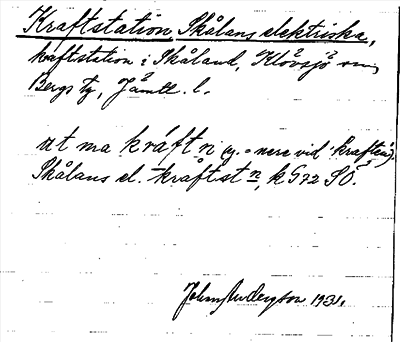 Kraftstation Skålans elektriska,
kraftstation i Skåland, Klövsjö sn,
Bergs tg, Jämtl. l.
ut ma kráft n (eg. = nere vid 'kraften').
Skålans el. kraftst n, k 592 SÖ.
John Andersson 1931.